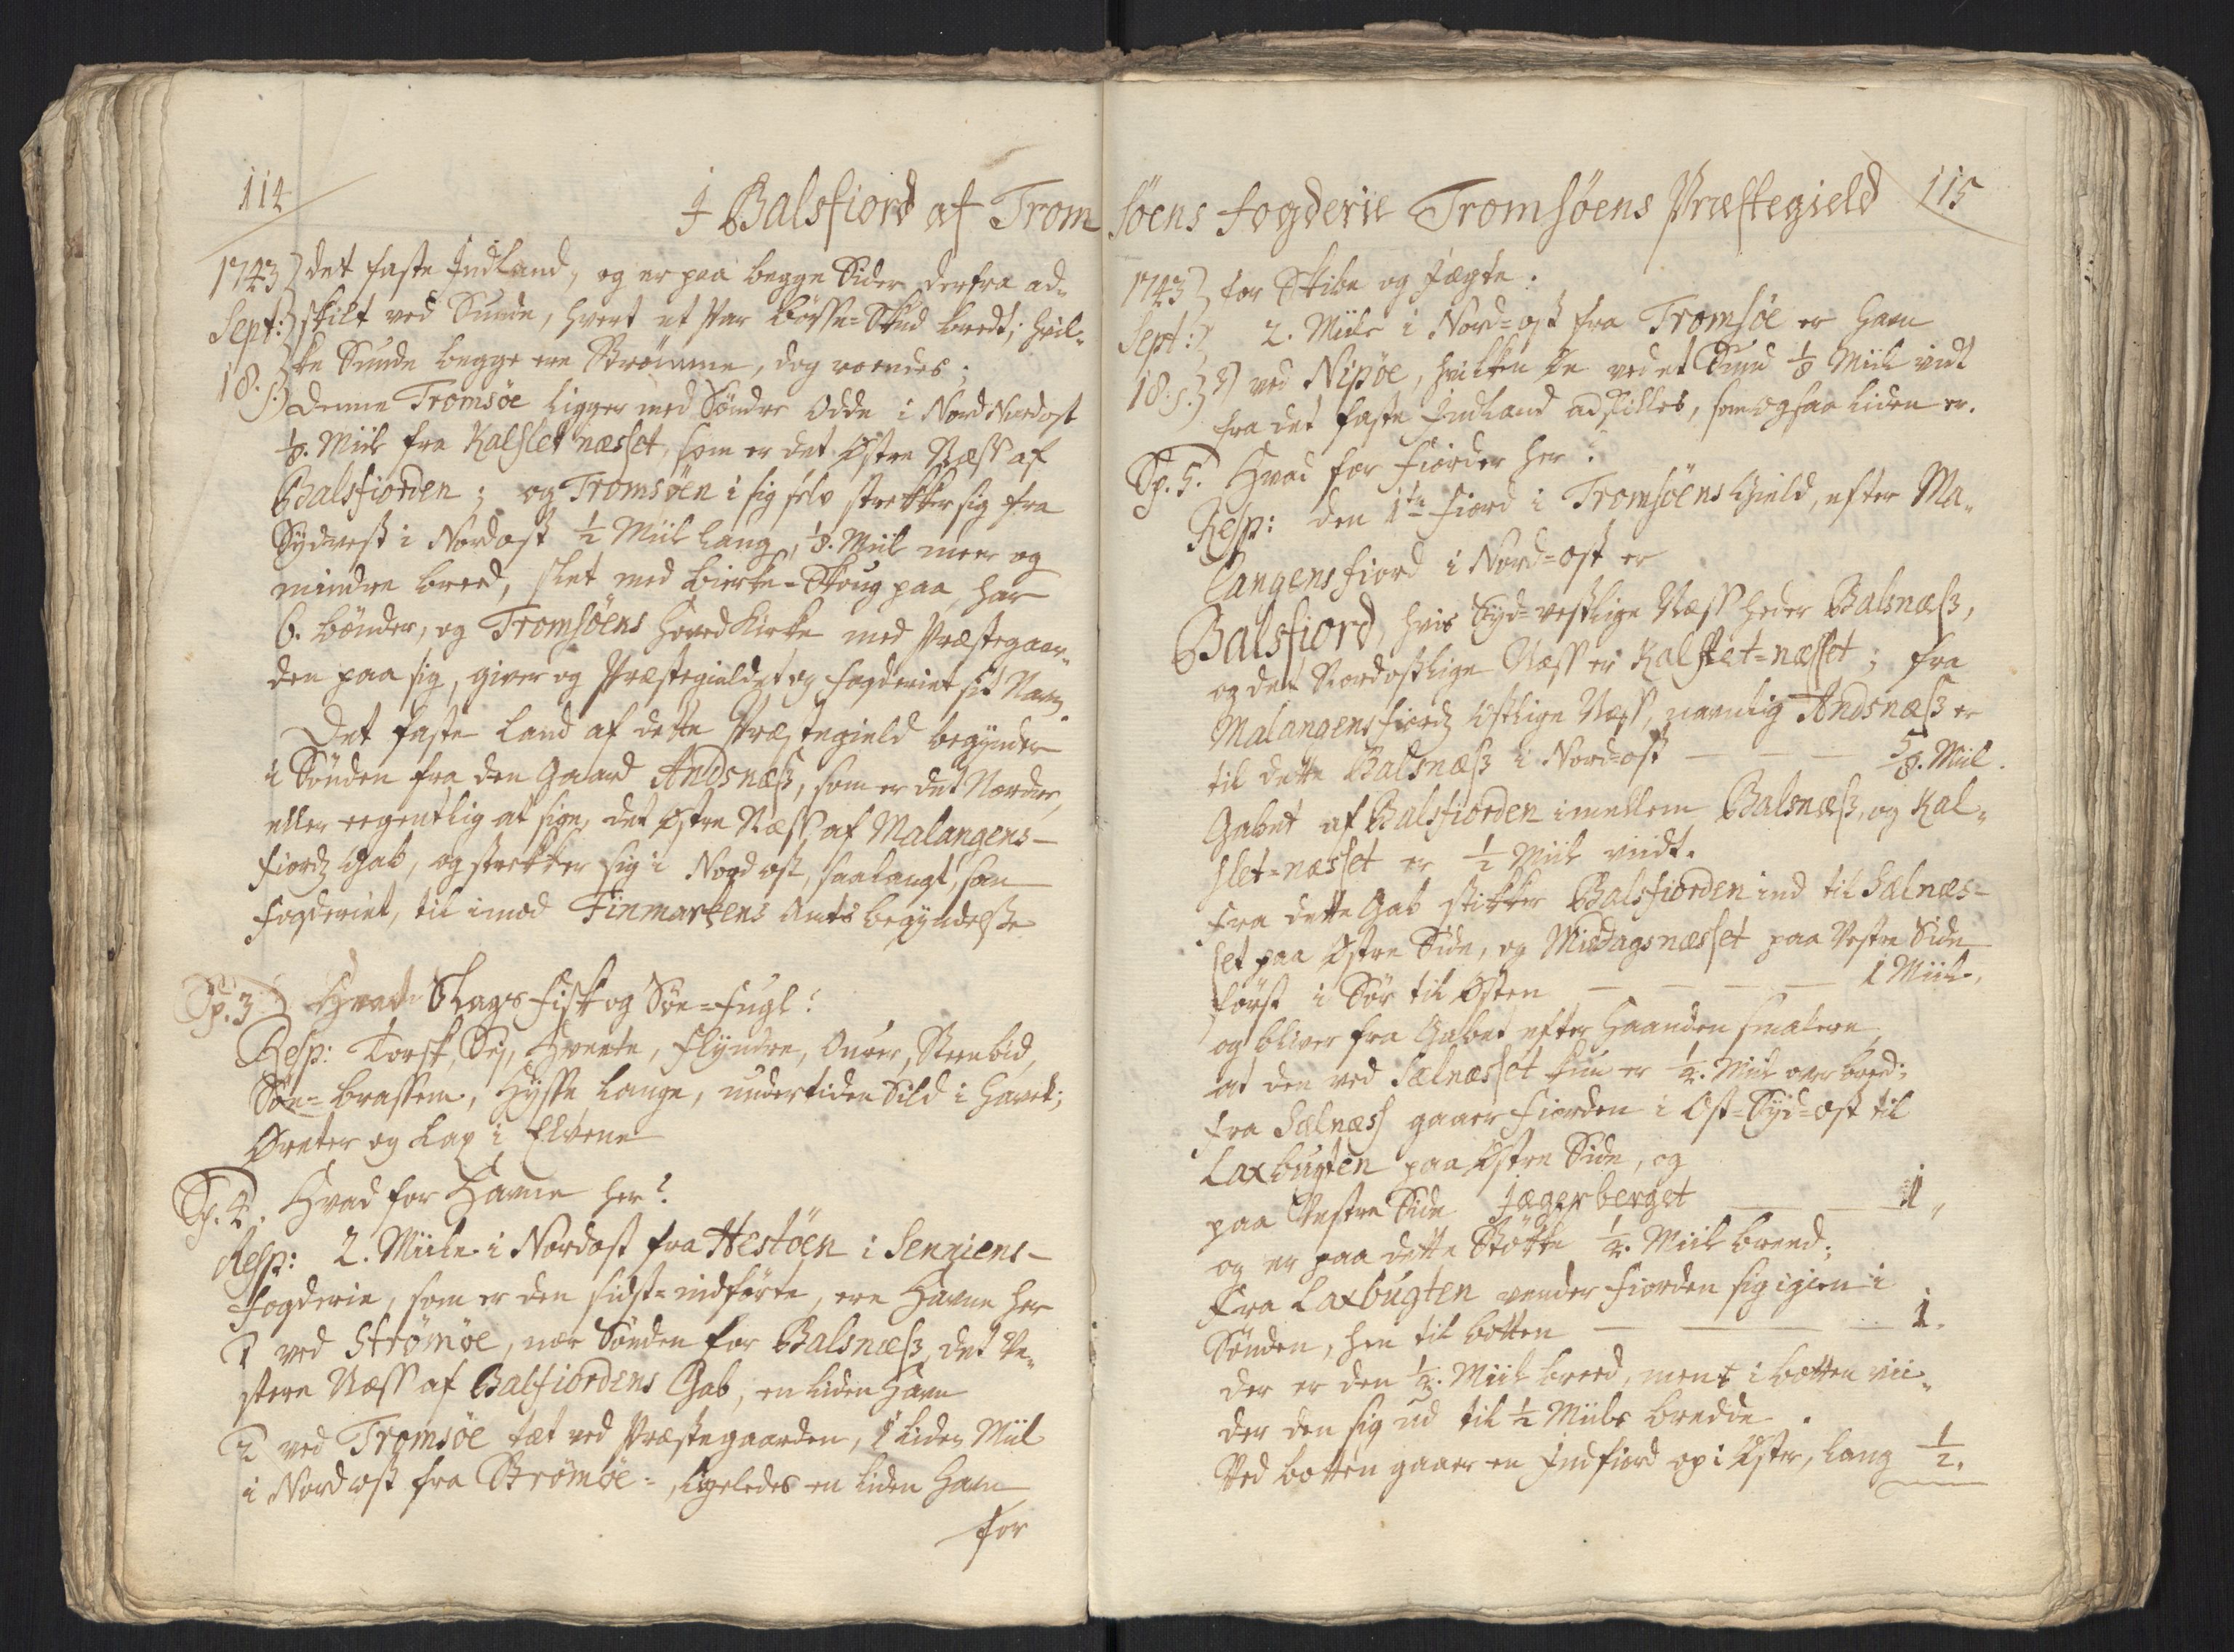 114
I Balsfiord af Trom
1743 det faste Indland, og er paa begge Sider derfra ad-
Sept: skilt ved Sunde, hvert et Par Bösse-Skud bredt; hvil-
18. ke Sunde begge ere Strömme, dog roendes;
s. Denne Tromsöe ligger med Söndre Odde i Nord Nordost
1/8. Miil fra Kalslet næsset, som er det Östre Næss af
Balsfiorden; og Tromsöen i sig selv strekker sig fra
Sydvest i Nordost 1/2 Miil lang, 1/8. Miil meer og
mindre breed, slet med Birke-Skoug paa, har
6. bönder, og Tromsöens Hoved Kirke med Præstegaar-
den paa sig, giver og Præstegieldet og fogderiet sit Navn.
Det faste Land af dette Præstegield begynder
i Sönden fra den Gaard Andsnæss, som er det Nordre,
eller eegentlig at sige, det Östre Næss af Malangens-
fiords Gab, og strekker sig i Nordost, saalangt, som
fogderiet, til imod Finmarkens Amts begyndelsse
Sp. 3. Hvad Slags fisk og Söe-fugl?
Resp: Torsk, Sej, Qveete, flyndre, Ouer, Steenbid,
Söe-brassem, Hysse Lange, undertiden Sild i Havet;
Öreter og Lax i Elvene
Sp. 4. Hvad for Havne her?
Resp: 2. Miile i Nordost fra Hestöen i Senniens-
fogderie, som er den sidst-indförte, ere Havne her
1 ved Strömöe, nær Sönden for Balsnæss, det Ve-
stere Næss af Balfiordens Gab, en liden Havn
2 ved Tromsöe tæt ved Præstegaarden, 1 liden Miil
i Nordost fra Strömöe, ligeledes en liden Havn
for
söens fogderie Tromsöens Præstegield 115
1743 for Skibe og Jægte.
Sept: 2. Miile i Nord-ost fra Tromsöe er Havn
18. s. 3) ved Nipöe, hvilken Öe ved et Sund 1/8 Miil vidt
fra det faste Indland adskilles, som ogsaa liden er.
Sp. 5. Hvad for fiorder her?
Resp: den 1te fiord i Tromsöens Gield, efter Ma-
langens fiord i Nord-ost er
Balsfiord, hvis Syd-vestlige Næss heder Balsnæss,
og den Nordostlige Næss er Kalslet-næsset; fra
Malangens fiords Östlige Næss, navnlig Andsnæss er
til dette Balsnæss i Nord-ost — — — 5/8. Miil.
Gabet af Balsfiorden imellem Balsnæss, og Kal-
slet-næsset er 1/2 Miil viidt.
fra dette Gab stikker Balsfiorden ind til Sælnæs-
set paa Östre Side, og Middagsnæsset paa Vestre Side
först i Sör til Östen — — — — 1 Miil.
og bliver fra Gabet efter Haanden smalere,
at den ved Sælnæsset kun er 1/4. Miil over bred;
fra Sælnæss gaaer fiorden i Ost-Syd-ost til
Laxbugten paa Östre Side, og
paa Vestre Side Jægerberget — — 1 "
og er paa dette Stökke 1/4. Miil breed;
fra Laxbugten vender fiorden sig igien i
Sönden, hen til botten — — — 1.
der er den 1/4. Miil breed, men i botten vii-
der den sig ud til 1/2 Miils bredde.
Ved botten gaaer en Indfiord op i Öster, lang 1/2.